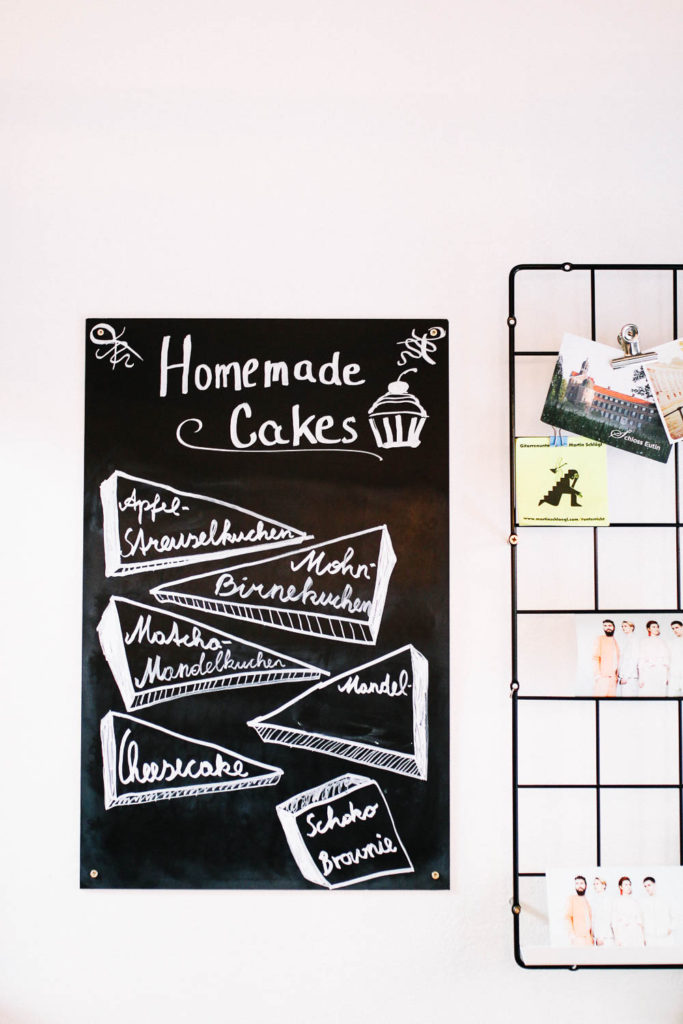 Homemade
Cakes
Apfel-
Streuselkuchen
Mohn-
Birnekuchen
Matcha-
Mandelkuchen
Mandel-
Cheesecake
Schoko
Brownie
Schloss Eutin
Gitarrenunterricht Martin Schlögl
www.martinschloegl.com/unterricht